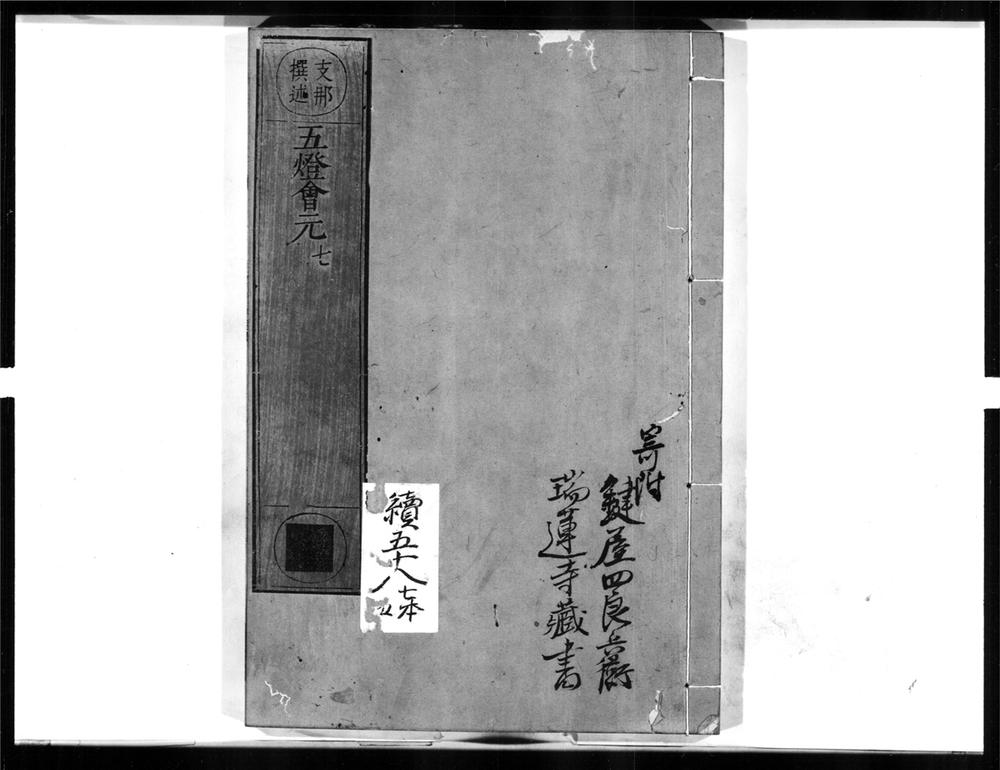 寄附
鍵屋四良兵衛
瑞蓮寺藏書
續五十八
七本
支那
撰述
五燈會元
七